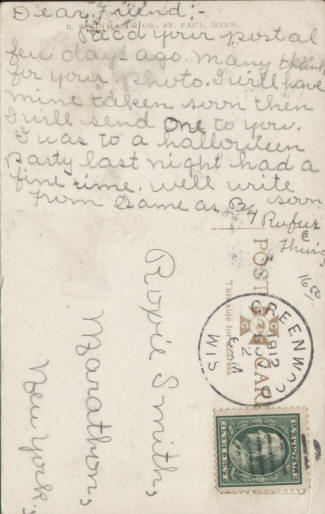 Dear Friend:-
Recd your postal
few days ago. Many thanks
for your photo. I will have
mine taken soon then
I will send one to you.
I was to a halloween
party last night had a
fine time. well write
soon
from Same as B/4
Rufus
E
POST CARD
This side for address
GREENWOOD
1912
WIS.
Roxie Smith,
Marathon,
New York.